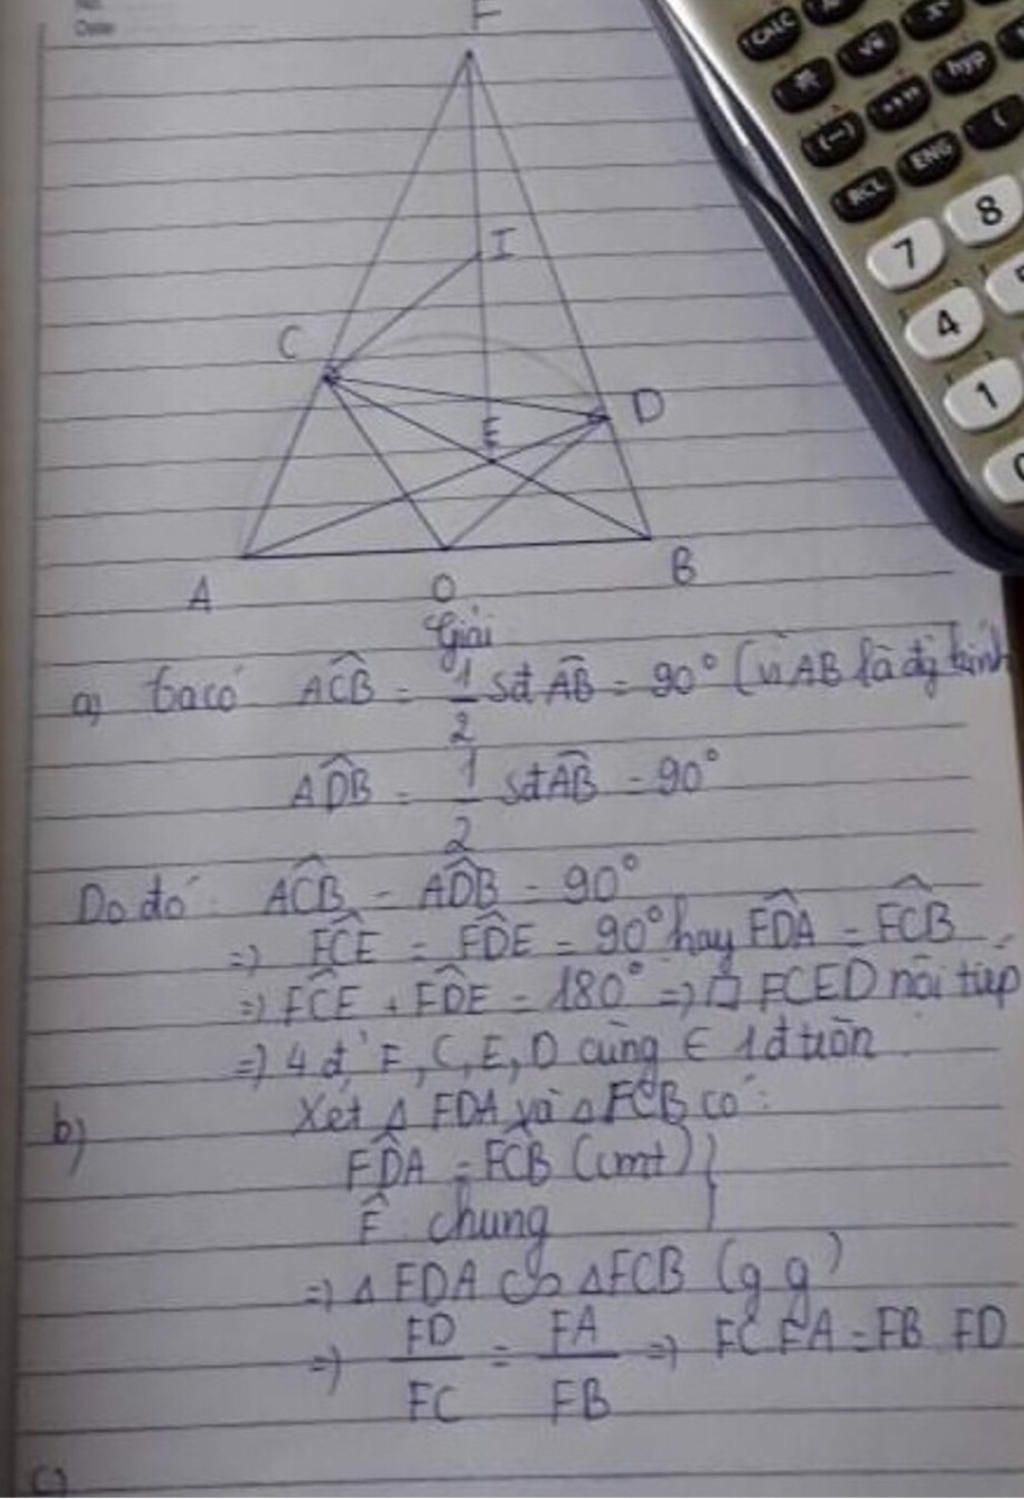 Date
F
I
C
D
E
A
O
B
Giải
a) ta có ACB = 1/2 sđ AB = 90° (vì AB là đg kính
ADB = 1/2 sđ AB = 90°
Do đó: ACB = ADB = 90°
=> FCE = FDE = 90° hay FDA = FCB
=> FCE + FDE = 180° => □ FCED nội tiếp
=> 4 đ' F, C, E, D cùng ∈ 1 đ tròn
b) Xét Δ FDA và Δ FCB có:
FDA = FCB (cmt)
F chung
=> Δ FDA ∽ Δ FCB (g g)
=> FD/FC = FA/FB => FC FA = FB FD
c)
CALC
hyp
(—)
°'"
(
RCL
ENG
7
8
4
5
1